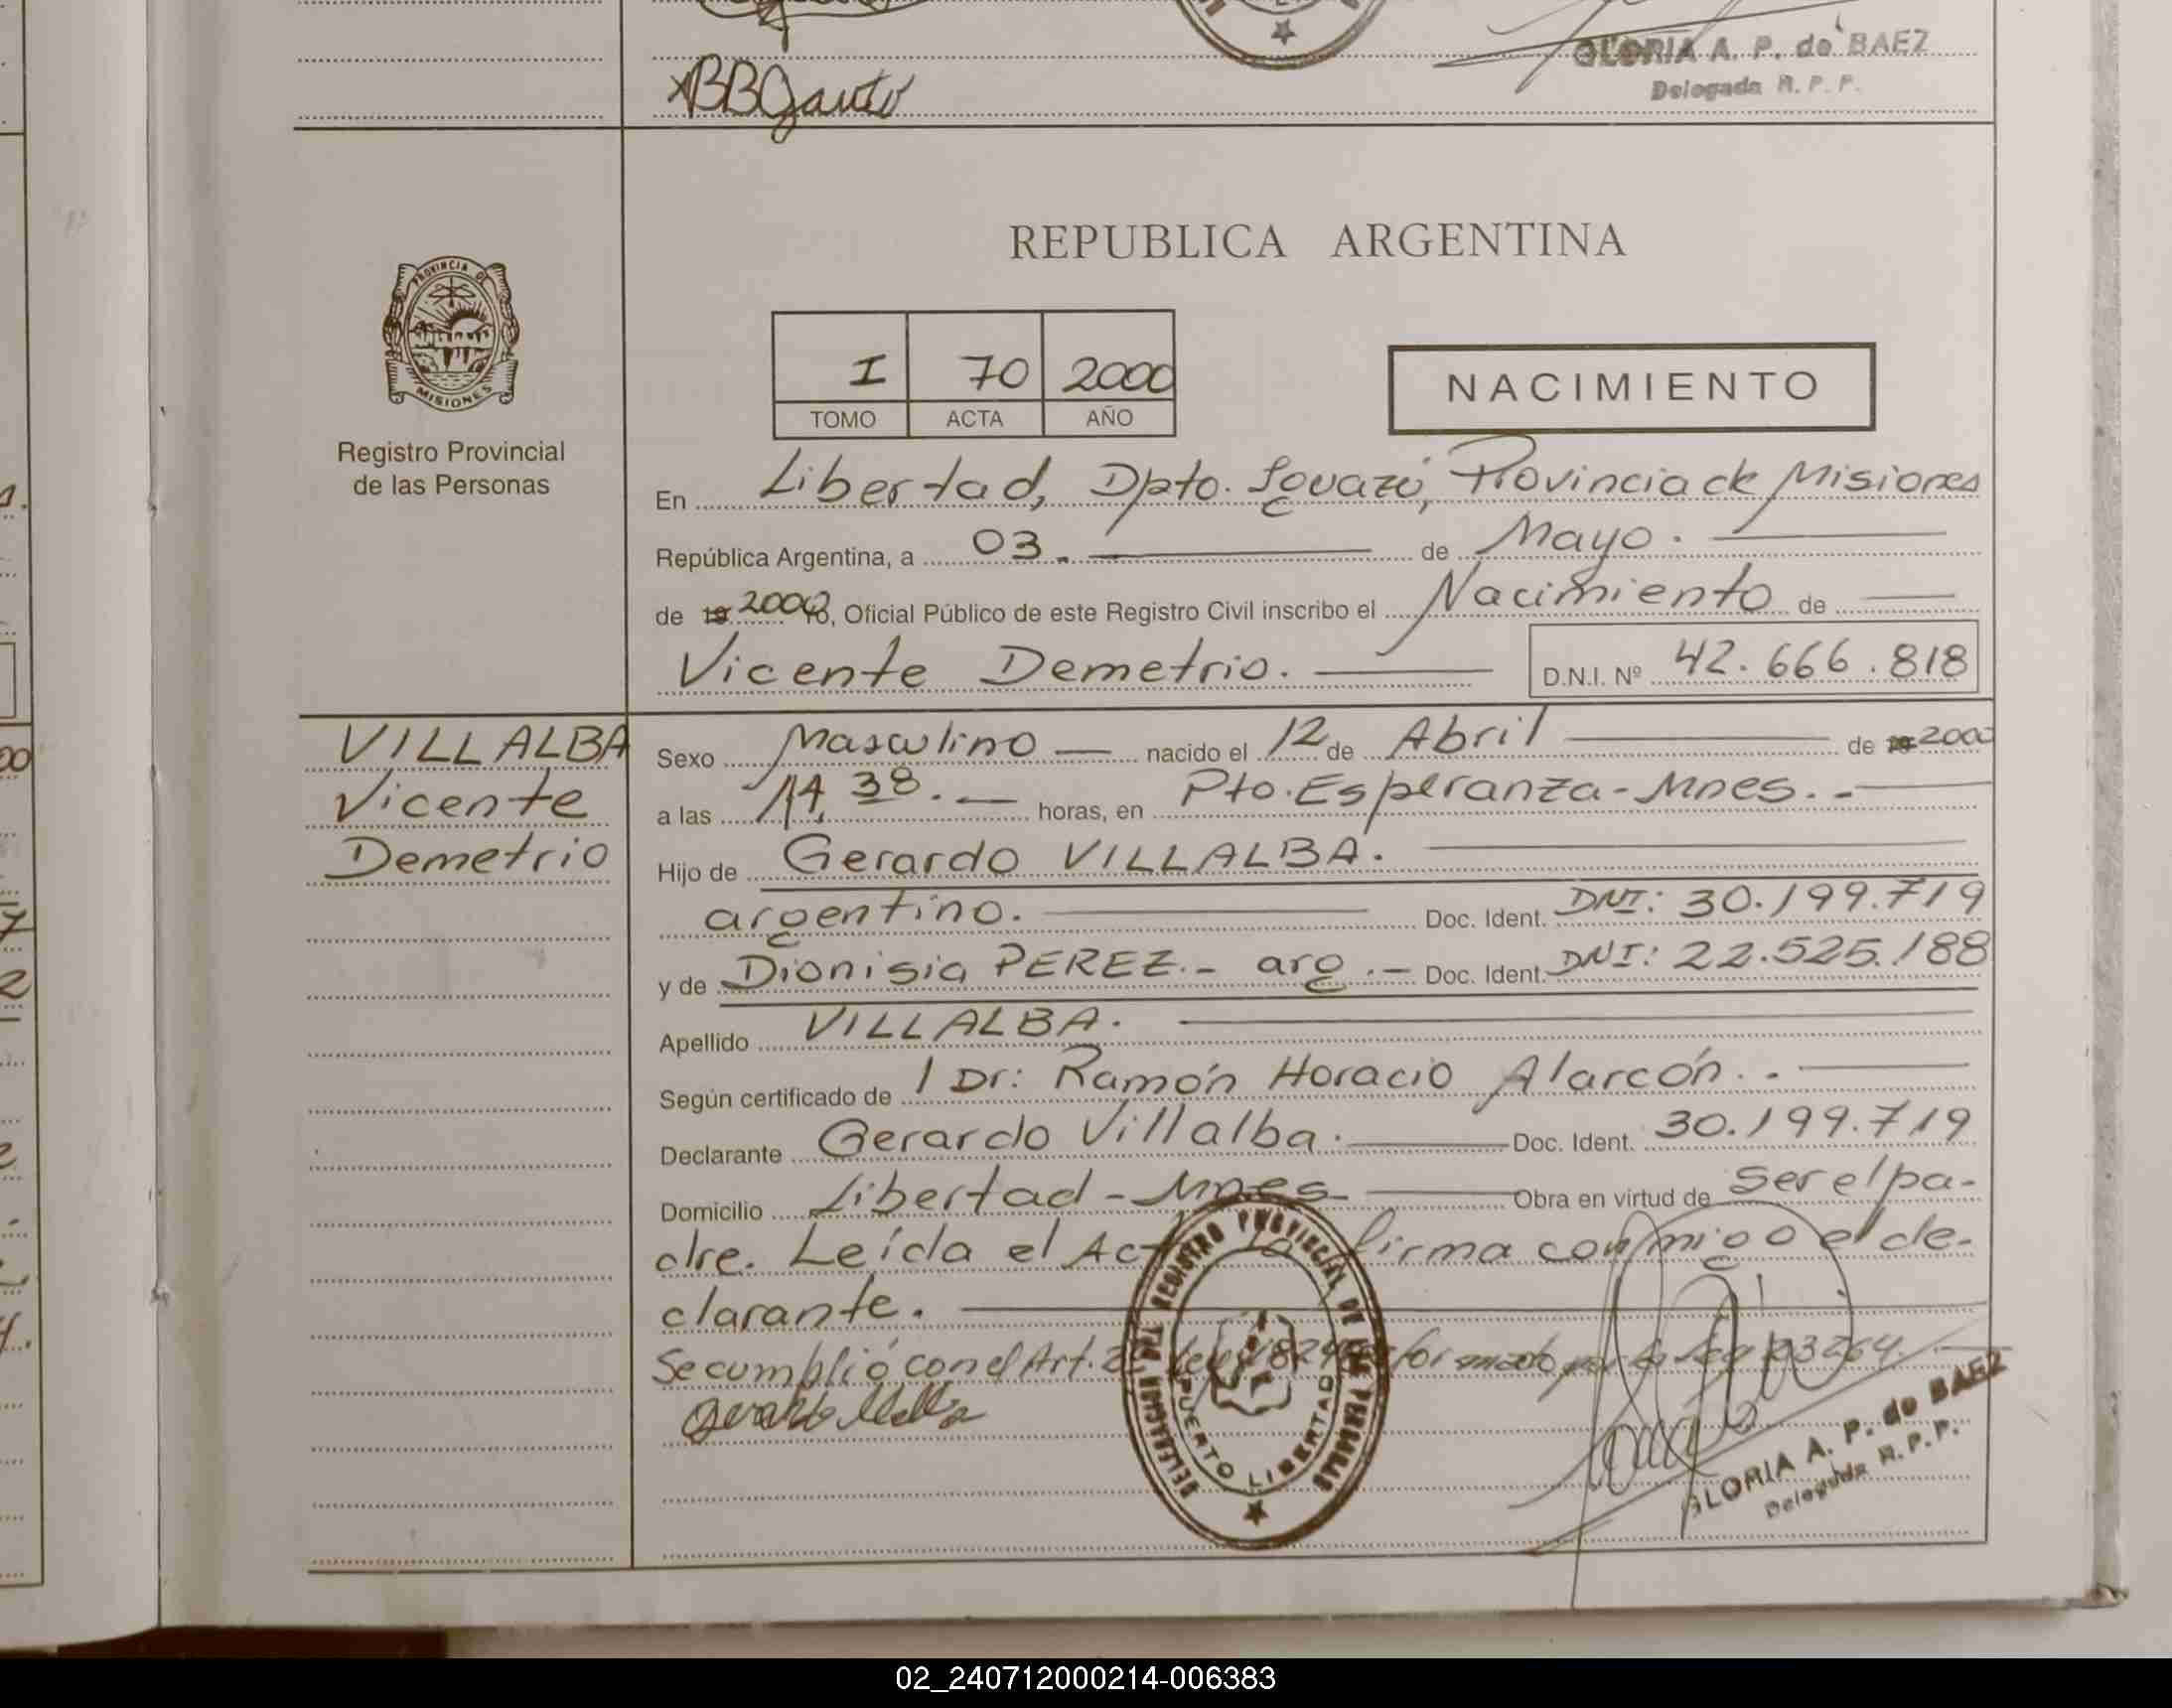 BBGauto
GLORIA A. P. de BAEZ
Delegada R. P. P.
PROVINCIA DE
MISIONES
Registro Provincial
de las Personas
REPUBLICA ARGENTINA
I 70 2000
TOMO ACTA AÑO
NACIMIENTO
En Libertad, Dpto. Iguazú, Provincia de Misiones
República Argentina, a 03. de Mayo.
de 19 2000, Oficial Público de este Registro Civil inscribo el Nacimiento de
Vicente Demetrio. D.N.I. Nº 42.666.818
VILLALBA
Vicente
Demetrio
Sexo Masculino nacido el 12 de Abril de 2000
a las 14,38.- horas, en Pto. Esperanza-Mnes.-
Hijo de Gerardo VILLALBA.
argentino. Doc. Ident. DNI: 30.199.719
y de Dionisia PEREZ.- arg.- Doc. Ident. DNI: 22.525.188
Apellido VILLALBA.
Según certificado de / Dr: Ramón Horacio Alarcón.-
Declarante Gerardo Villalba. Doc. Ident. 30.199.719
Domicilio Libertad-Mnes- Obra en virtud de ser el pa-
dre. Leída el Acta la firma conmigo el de-
clarante.
Se cumplió con el Art. 2 Ley 18248 reformado por la Ley 23264.
Gerardo Villalba
DELEGACION DEL REGISTRO PROVINCIAL DE LAS PERSONAS
PUERTO LIBERTAD
GLORIA A. P. de BAEZ
Delegada R. P. P.
02_240712000214-006383